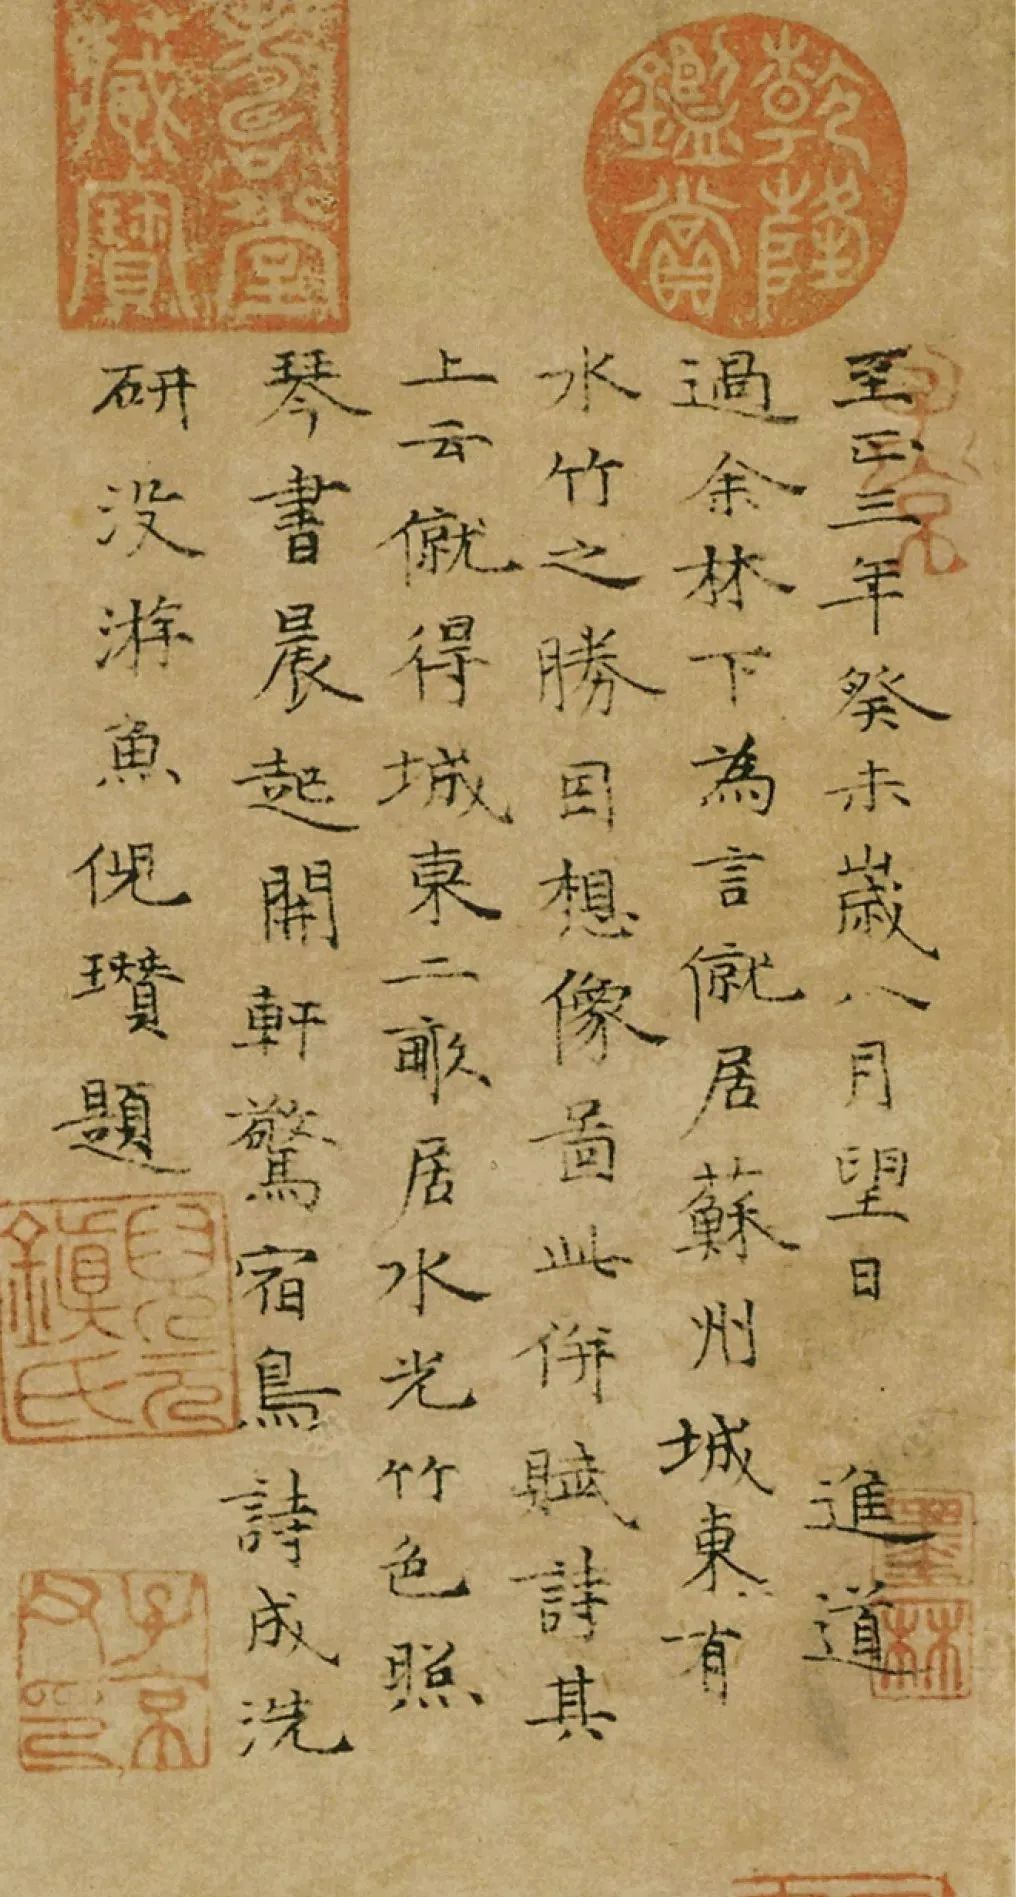 至正三年癸未歲八月望日 進道
過余林下為言僦居蘇州城東有
水竹之勝因想像圖此併賦詩其
上云僦得城東二畝居水光竹色照
琴書晨起開軒驚宿鳥詩成洗
研没游魚倪瓚題
乾隆
鑑賞
壽堂
藏寶
子京
墨林
子京
父印